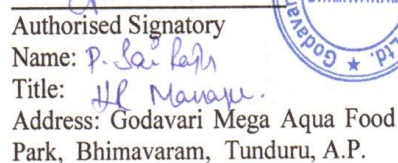 Authorised Signatory
Name: P. Sai Raju
Title: HR Manager.
Address: Godavari Mega Aqua Food
Park, Bhimavaram, Tunduru, A.P.
Godavari
Ltd. ★